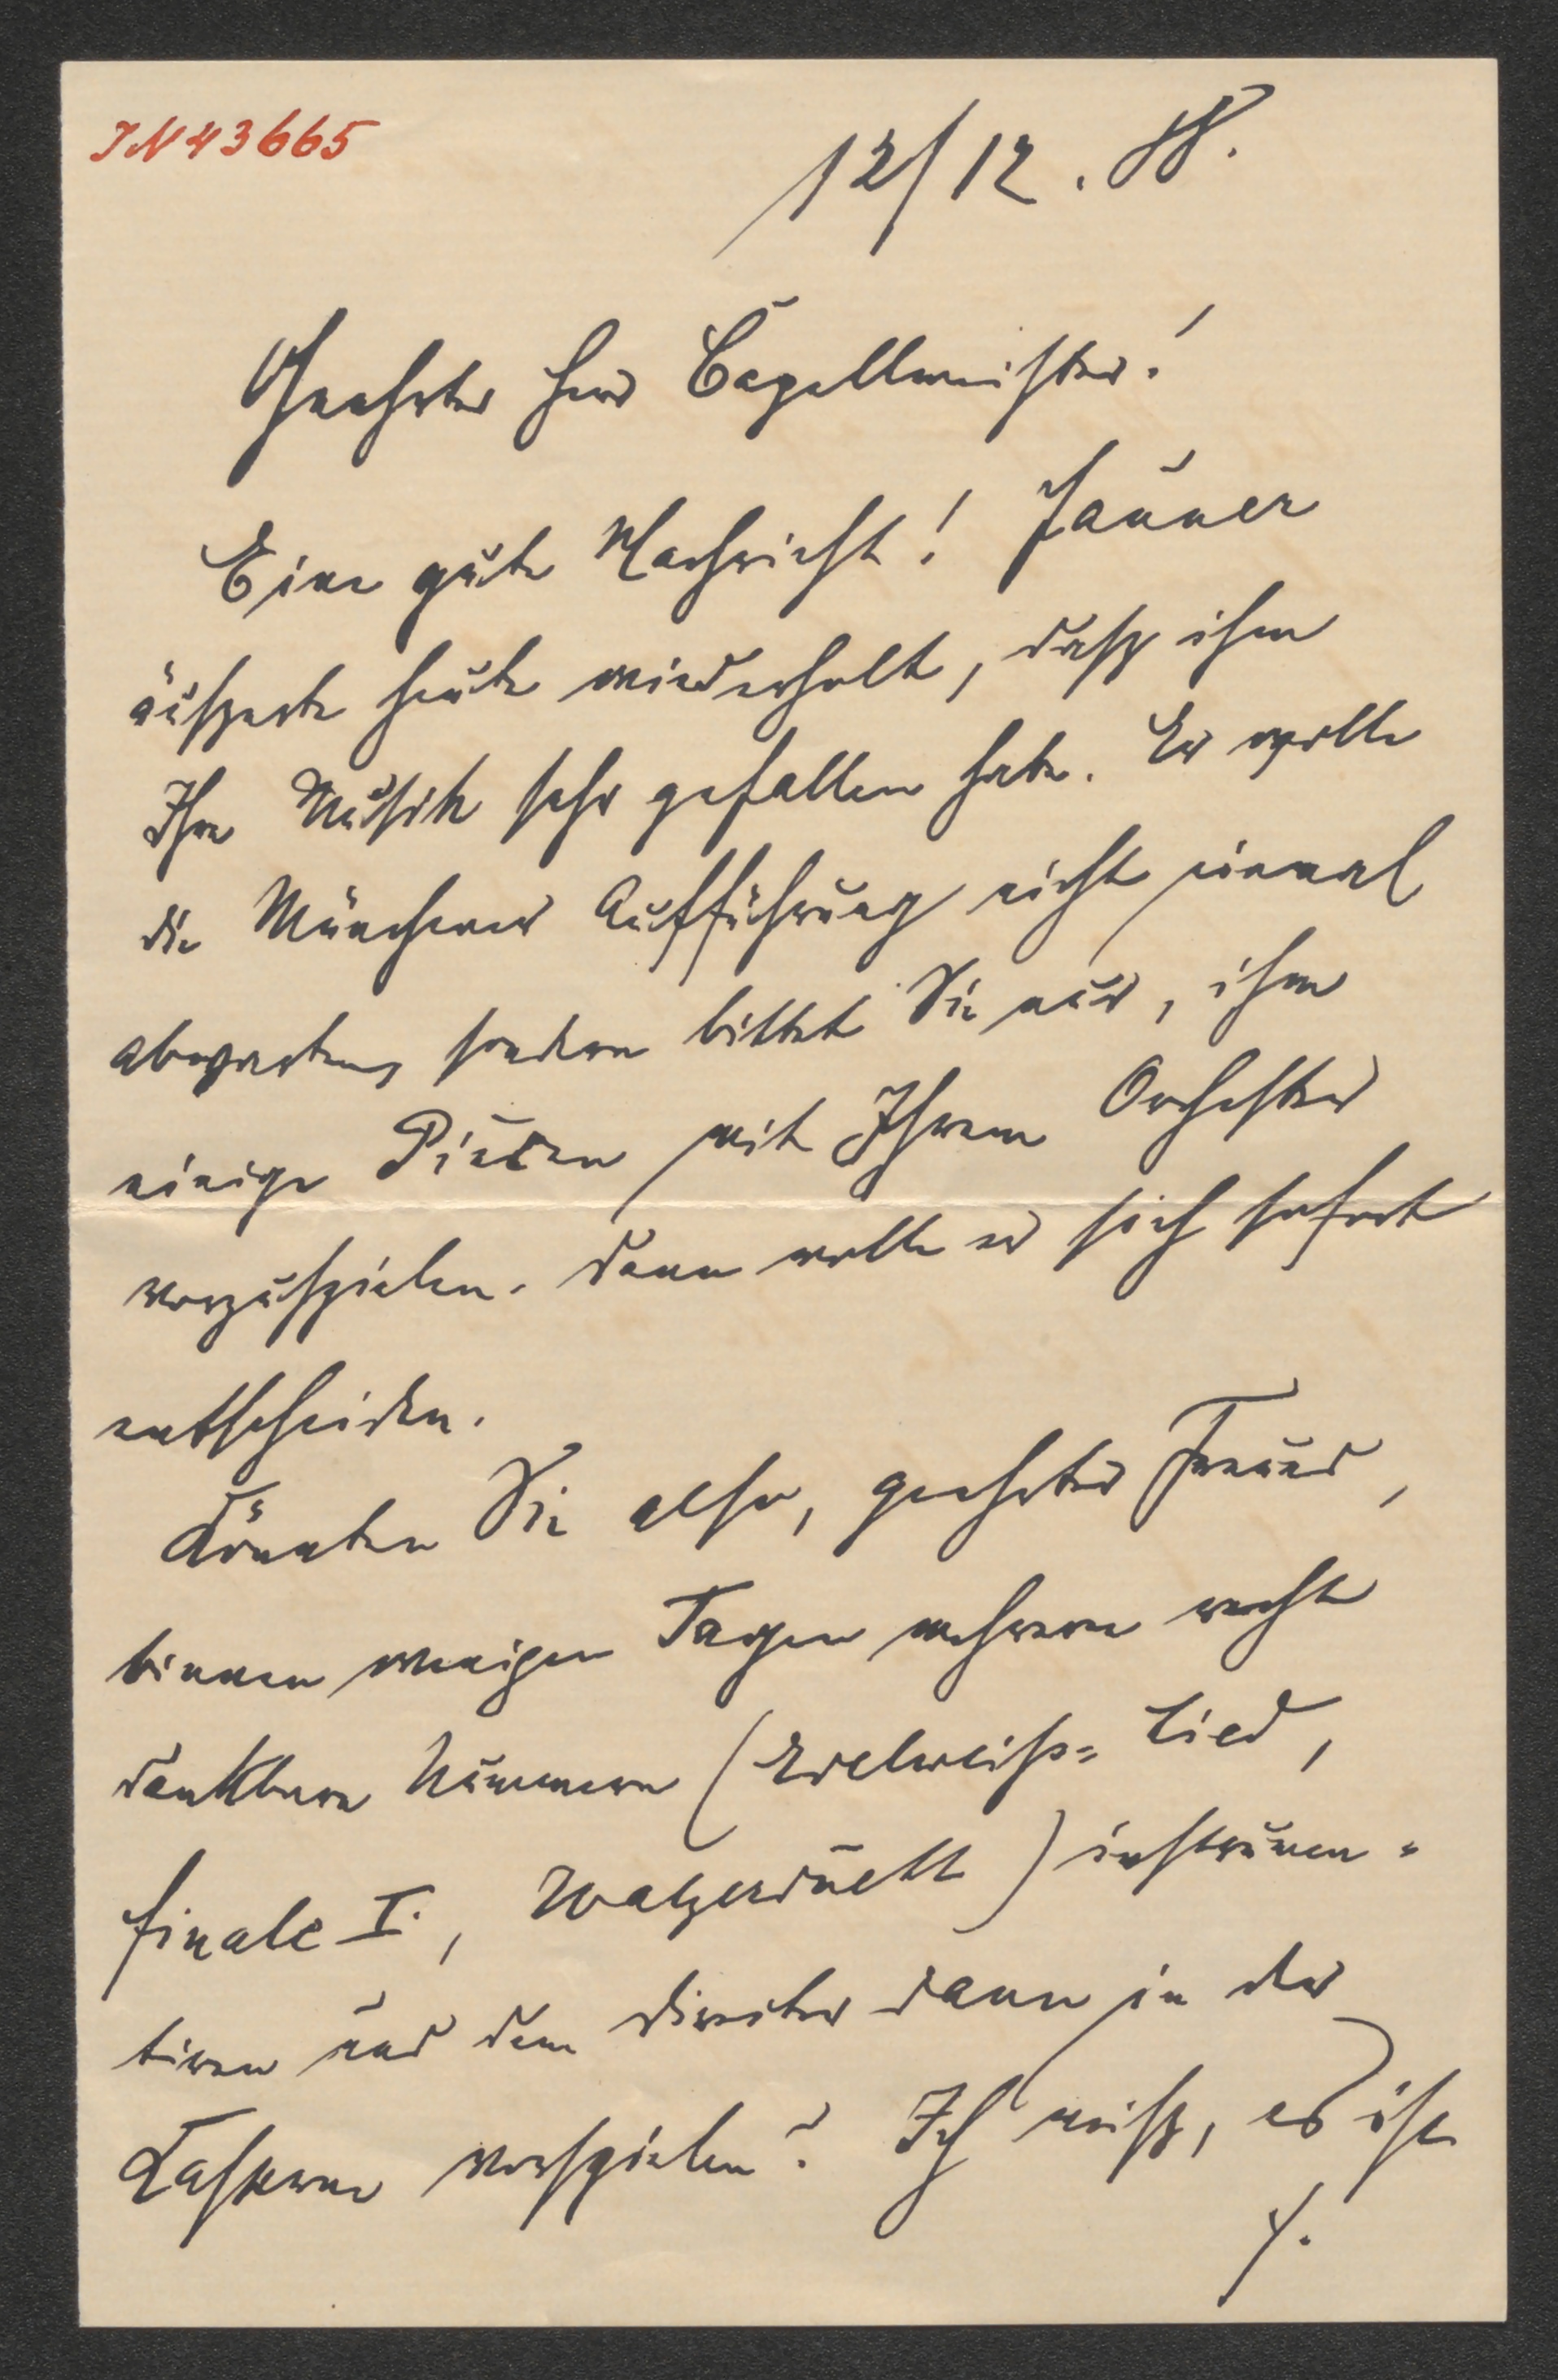 IN 43665
12/12. 88.
Geehrter Herr Capellmeister!
Eine gute Nachricht! Jauner
äußerte heute wiederholt, daß ihm
Ihre Musik sehr gefallen habe. Er wolle
die Münchener Aufführung nicht einmal
abwarten, sondern bittet Sie nur, ihm
einige Piècen mit Ihrem Orchester
vorzuspielen. Dann wolle er sich sofort
entscheiden.
Könnten Sie also, geehrter Freund,
binnen wenigen Tagen mehrere recht
dankbare Nummern (Edelweiß= Lied,
Finale I., Walzerduett) instrumen=
tiren und dem Direktor dann in der
Kaserne vorspielen? Ich weiß, es ist
./.